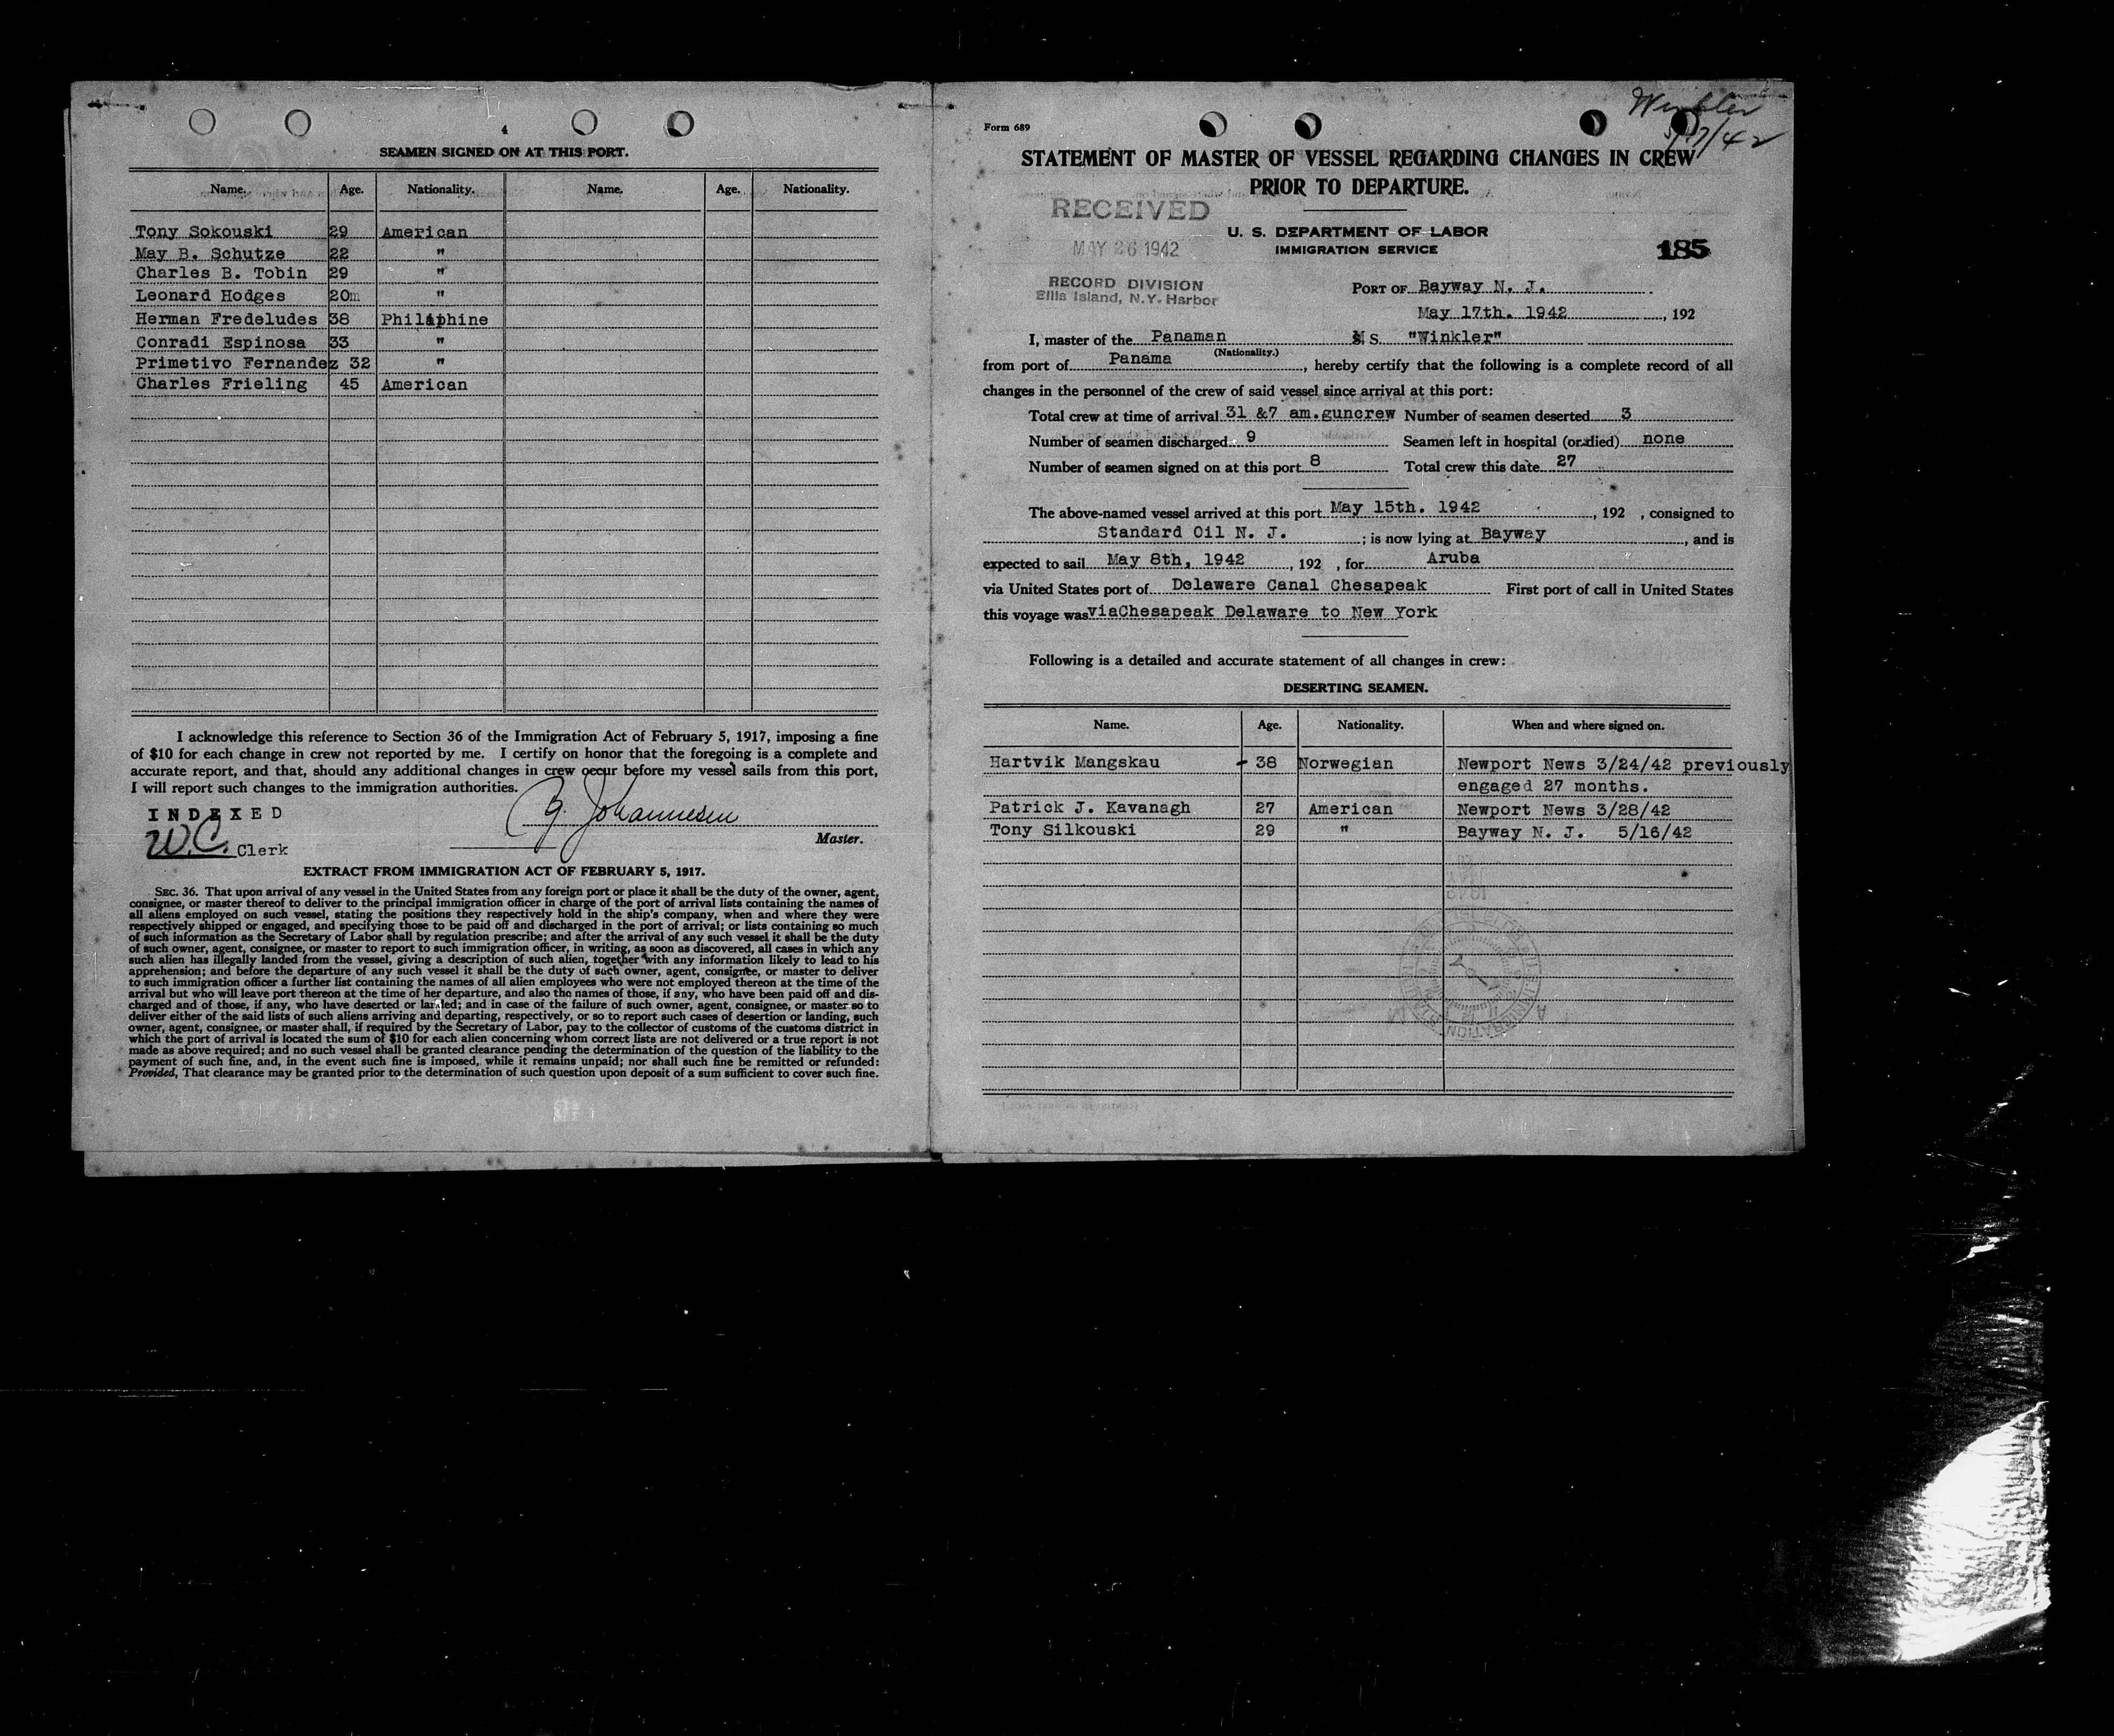 4
SEAMEN SIGNED ON AT THIS PORT.
Name. Age. Nationality. Name. Age. Nationality.
Tony Sokouski 29 American
May B. Schutze 22 "
Charles B. Tobin 29 "
Leonard Hodges 20m "
Herman Fredeludes 38 Philiphine
Conradi Espinosa 33 "
Primetivo Fernandez 32 "
Charles Frieling 45 American
I acknowledge this reference to Section 36 of the Immigration Act of February 5, 1917, imposing a fine
of $10 for each change in crew not reported by me. I certify on honor that the foregoing is a complete and
accurate report, and that, should any additional changes in crew occur before my vessel sails from this port,
I will report such changes to the immigration authorities.
INDEXED
W.C. Clerk
Johannesen
Master.
EXTRACT FROM IMMIGRATION ACT OF FEBRUARY 5, 1917.
SEC. 36. That upon arrival of any vessel in the United States from any foreign port or place it shall be the duty of the owner, agent,
consignee, or master thereof to deliver to the principal immigration officer in charge of the port of arrival lists containing the names of
all aliens employed on such vessel, stating the positions they respectively hold in the ship's company, when and where they were
respectively shipped or engaged, and specifying those to be paid off and discharged in the port of arrival; or lists containing so much
of such information as the Secretary of Labor shall by regulation prescribe; and after the arrival of any such vessel it shall be the duty
of such owner, agent, consignee, or master to report to such immigration officer, in writing, as soon as discovered, all cases in which any
such alien has illegally landed from the vessel, giving a description of such alien, together with any information likely to lead to his
apprehension; and before the departure of any such vessel it shall be the duty of such owner, agent, consignee, or master to deliver
to such immigration officer a further list containing the names of all alien employees who were not employed thereon at the time of the
arrival but who will leave port thereon at the time of her departure, and also the names of those, if any, who have been paid off and dis-
charged and of those, if any, who have deserted or landed; and in case of the failure of such owner, agent, consignee, or master so to
deliver either of the said lists of such aliens arriving and departing, respectively, or so to report such cases of desertion or landing, such
owner, agent, consignee, or master shall, if required by the Secretary of Labor, pay to the collector of customs of the customs district in
which the port of arrival is located the sum of $10 for each alien concerning whom correct lists are not delivered or a true report is not
made as above required; and no such vessel shall be granted clearance pending the determination of the question of the liability to the
payment of such fine, and, in the event such fine is imposed, while it remains unpaid; nor shall such fine be remitted or refunded:
Provided, That clearance may be granted prior to the determination of such question upon deposit of a sum sufficient to cover such fine.
Winkler
5/17/42
Form 689
STATEMENT OF MASTER OF VESSEL REGARDING CHANGES IN CREW
PRIOR TO DEPARTURE.
RECEIVED
MAY 26 1942
RECORD DIVISION
Ellis Island, N.Y. Harbor
U. S. DEPARTMENT OF LABOR
IMMIGRATION SERVICE
185
PORT OF Bayway N. J.
May 17th. 1942, 192
I, master of the Panaman M S. "Winkler"
(Nationality.)
from port of Panama, hereby certify that the following is a complete record of all
changes in the personnel of the crew of said vessel since arrival at this port:
Total crew at time of arrival 31 &7 am.guncrew Number of seamen deserted 3
Number of seamen discharged 9 Seamen left in hospital (or died) none
Number of seamen signed on at this port 8 Total crew this date 27
The above-named vessel arrived at this port May 15th. 1942, 192 , consigned to
Standard Oil N. J.; is now lying at Bayway, and is
expected to sail May 8th, 1942, 192 , for Aruba
via United States port of Delaware Canal Chesapeak First port of call in United States
this voyage was viaChesapeak Delaware to New York
Following is a detailed and accurate statement of all changes in crew:
DESERTING SEAMEN.
Name. Age. Nationality. When and where signed on.
Hartvik Mangskau - 38 Norwegian Newport News 3/24/42 previously
engaged 27 months.
Patrick J. Kavanagh 27 American Newport News 3/28/42
Tony Silkouski 29 " Bayway N. J. 5/16/42